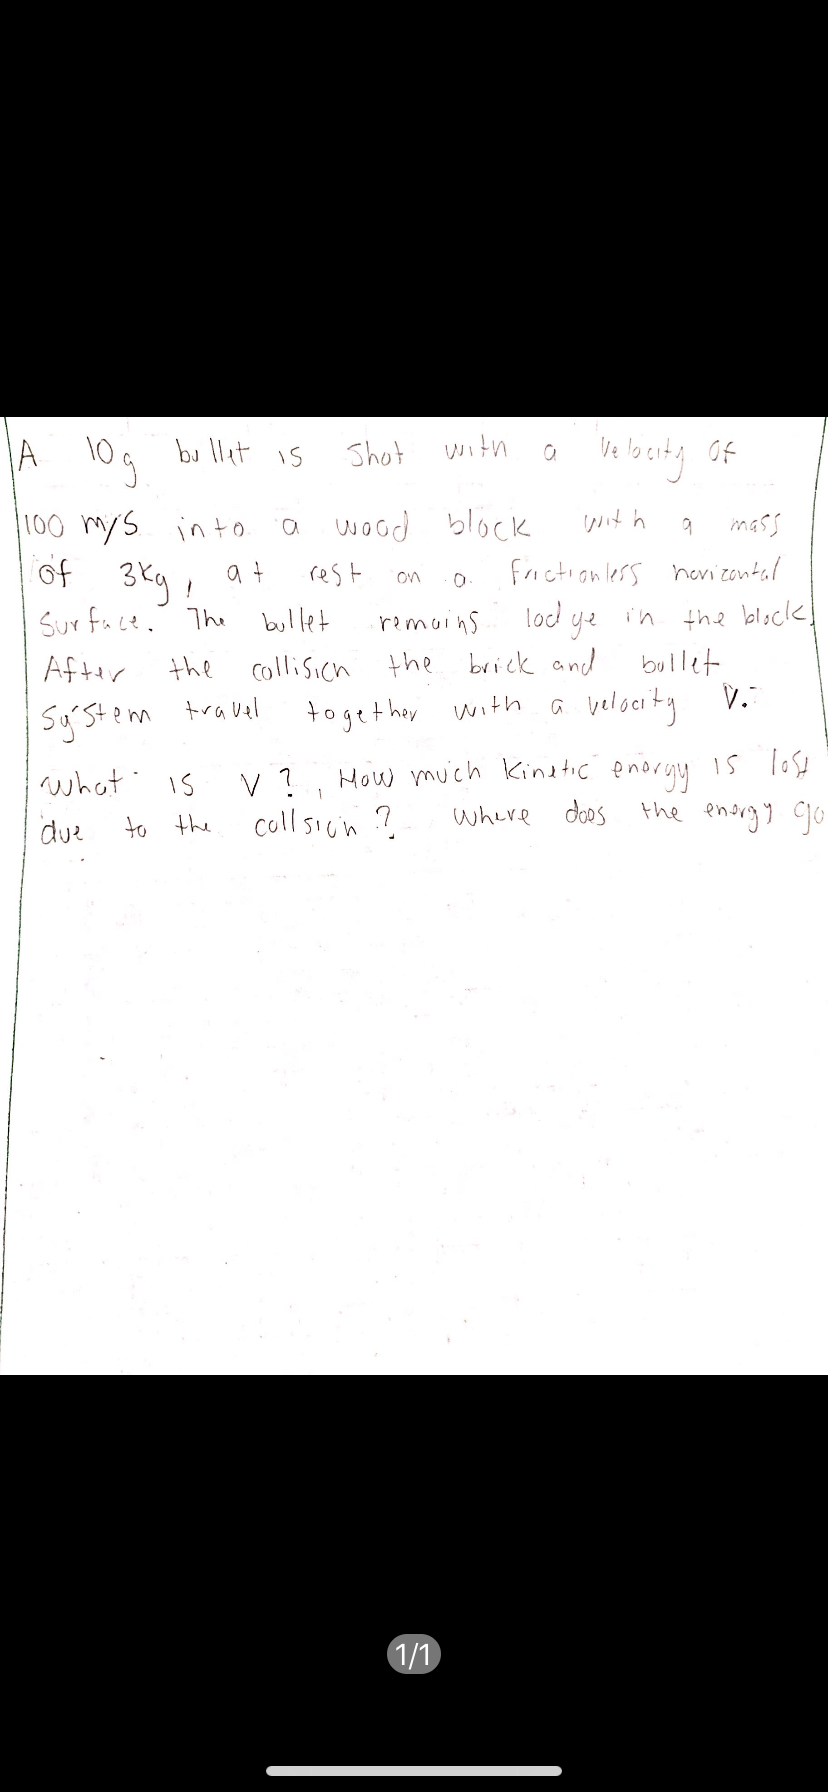 A 10g bullet is shot with a velocity of
100 m/s into a wood block with a mass
of 3kg, at rest on a frictionless horizontal
surface. The bullet remains lodge in the block.
After the collision the brick and bullet
system travel together with a velocity V.
What is V?, How much kinetic energy is lost
due to the collsion? Where does the energy go
1/1